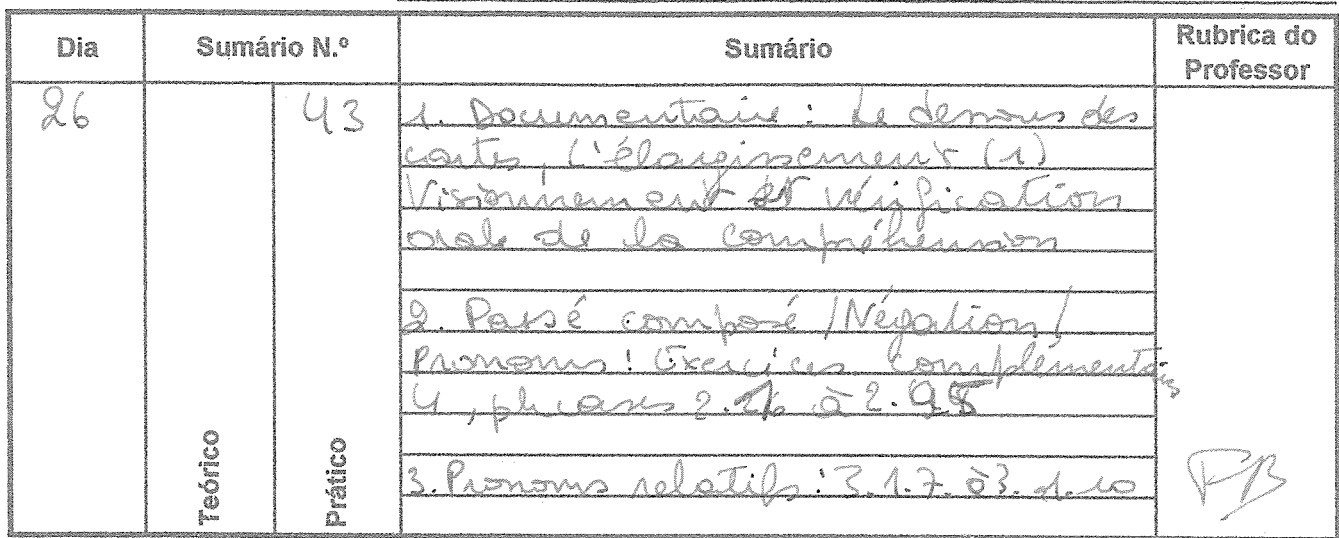 Dia Sumário N.º Sumário Rubrica do Professor
26 43 1. Documentaire : Le dessous des
cartes, L'élargissement (1)
Visionnement et vérification
orale de la compréhension
2. Passé composé / Négation /
Pronoms : Exercices complémentaires
4, phrases 2. à 2.
3. Pronoms relatifs : 3.1.7. à 3.1.10
Teórico Prático
PB